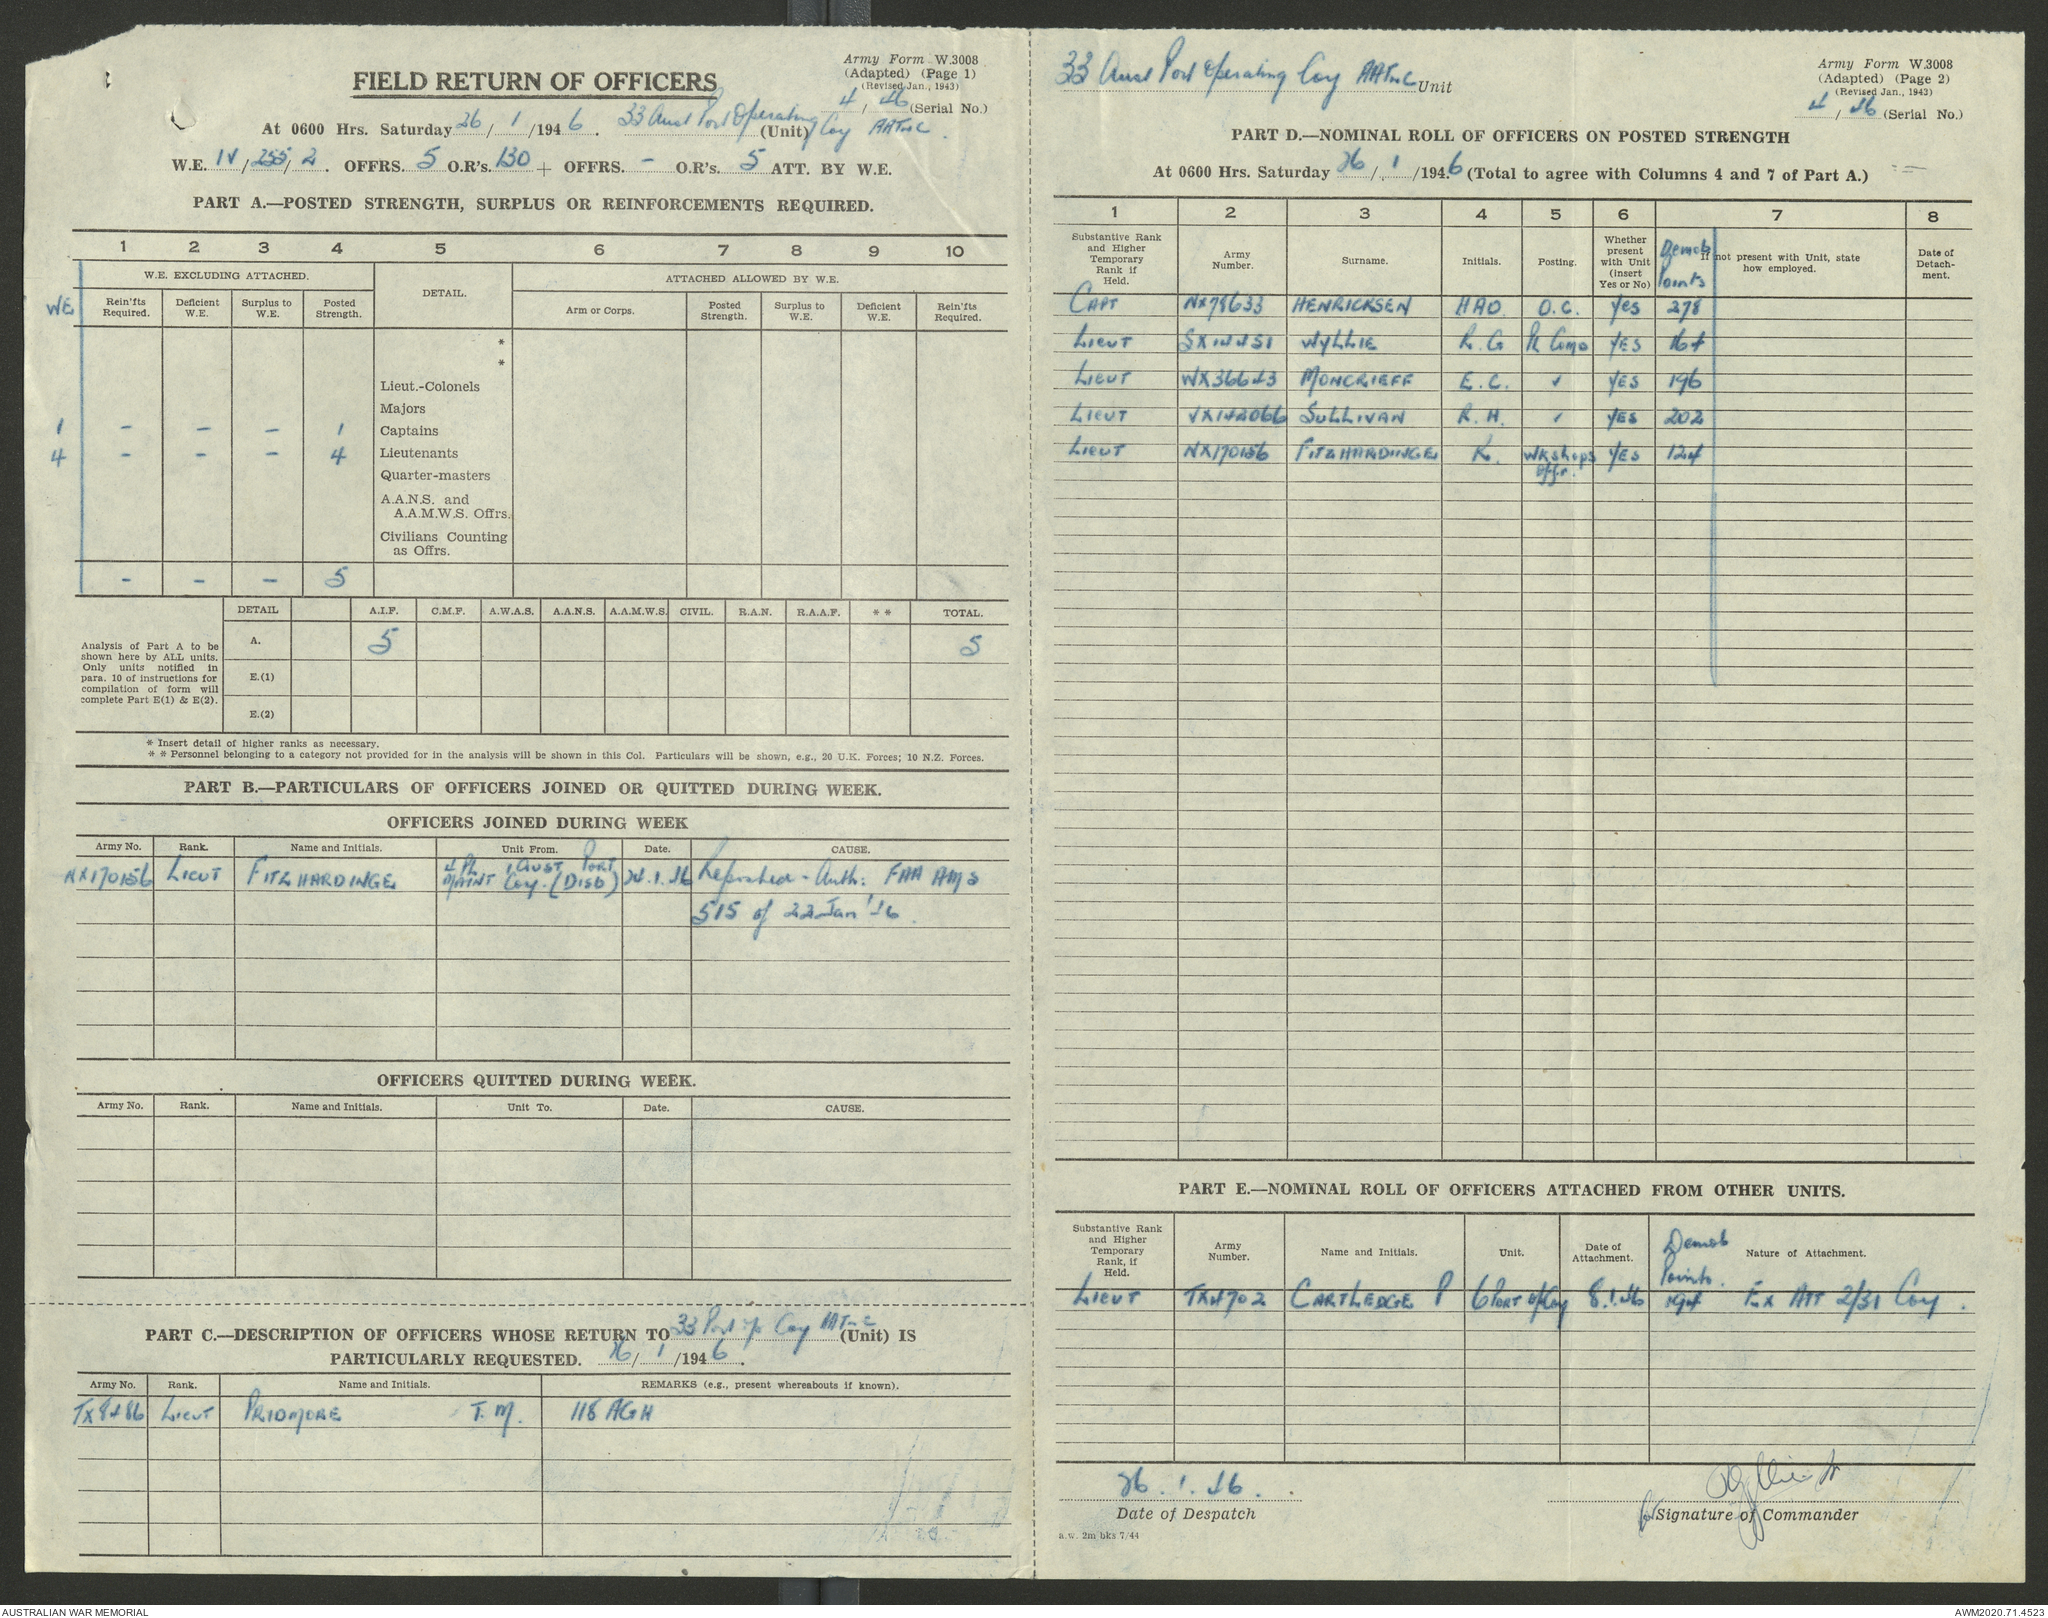 Army Form W.3008
(Adapted) (Page 1)
(Revised Jan., 1943)
FIELD RETURN OF OFFICERS
4 / 46 (Serial No.)
At 0600 Hrs. Saturday 26/1/1946. 33 Aust Port Operating Coy AATnC. (Unit)
W.E. IV/255/2. OFFRS. 5 O.R's. 130 + OFFRS. - O.R's. 5 ATT. BY W.E.
PART A.—POSTED STRENGTH, SURPLUS OR REINFORCEMENTS REQUIRED.
1 2 3 4 5 6 7 8 9 10
W.E. EXCLUDING ATTACHED. DETAIL. ATTACHED ALLOWED BY W.E.
WE Rein'fts Required. Deficient W.E. Surplus to W.E. Posted Strength. Arm or Corps. Posted Strength. Surplus to W.E. Deficient W.E. Rein'fts Required.
*
*
Lieut.-Colonels
Majors
1 - - - 1 Captains
4 - - - 4 Lieutenants
Quarter-masters
A.A.N.S. and
A.A.M.W.S. Offrs.
Civilians Counting
as Offrs.
- - - 5
DETAIL A.I.F. C.M.F. A.W.A.S. A.A.N.S. A.A.M.W.S. CIVIL. R.A.N. R.A.A.F. * * TOTAL.
A. 5 5
Analysis of Part A to be
shown here by ALL units.
Only units notified in
para. 10 of instructions for
compilation of form will
complete Part E(1) & E(2).
E.(1)
E.(2)
* Insert detail of higher ranks as necessary.
* * Personnel belonging to a category not provided for in the analysis will be shown in this Col. Particulars will be shown, e.g., 20 U.K. Forces; 10 N.Z. Forces.
PART B.—PARTICULARS OF OFFICERS JOINED OR QUITTED DURING WEEK.
OFFICERS JOINED DURING WEEK
Army No. Rank. Name and Initials. Unit From. Date. CAUSE.
NX170156 LIEUT FITZHARDINGE 4 PL 1 AUST PORT MAINT Coy. (DISB) 24.1.46 Reposted - Auth: FAA AMS
515 of 22 Jan '46.
OFFICERS QUITTED DURING WEEK.
Army No. Rank. Name and Initials. Unit To. Date. CAUSE.
PART C.—DESCRIPTION OF OFFICERS WHOSE RETURN TO 33 Port Op Coy AATnC (Unit) IS
PARTICULARLY REQUESTED. 26/1/1946.
Army No. Rank. Name and Initials. REMARKS (e.g., present whereabouts if known).
TX8486 LIEUT PRIDMORE T.M. 118 AGH
33 Aust Port Operating Coy AATnC Unit
Army Form W.3008
(Adapted) (Page 2)
(Revised Jan., 1943)
4 / 46 (Serial No.)
PART D.—NOMINAL ROLL OF OFFICERS ON POSTED STRENGTH
At 0600 Hrs. Saturday 26/1/1946 (Total to agree with Columns 4 and 7 of Part A.)
1 2 3 4 5 6 7 8
Substantive Rank and Higher Temporary Rank if Held. Army Number. Surname. Initials. Posting. Whether present with Unit (insert Yes or No) Demob Points If not present with Unit, state how employed. Date of Detach-ment.
CAPT NX78633 HENRICKSEN HAO. O.C. Yes 278
LIEUT SX14451 WYLLIE R.G YES 164
LIEUT WX36643 MONCRIEFF E.C. YES 196
LIEUT VX142066 SULLIVAN R.H. YES 202
LIEUT NX170156 FITZHARDINGE K. WKshops YES 124
offr.
PART E.—NOMINAL ROLL OF OFFICERS ATTACHED FROM OTHER UNITS.
Substantive Rank and Higher Temporary Rank, if Held. Army Number. Name and Initials. Unit. Date of Attachment. Demob Points. Nature of Attachment.
LIEUT TX4702 CARTLEDGE P 6 PORT Op Coy 8.1.46 194 Ex ATT 2/31 Coy.
26.1.46.
Date of Despatch
for Signature of Commander
a.w. 2m bks 7/44
AUSTRALIAN WAR MEMORIAL
AWM2020.71.4523